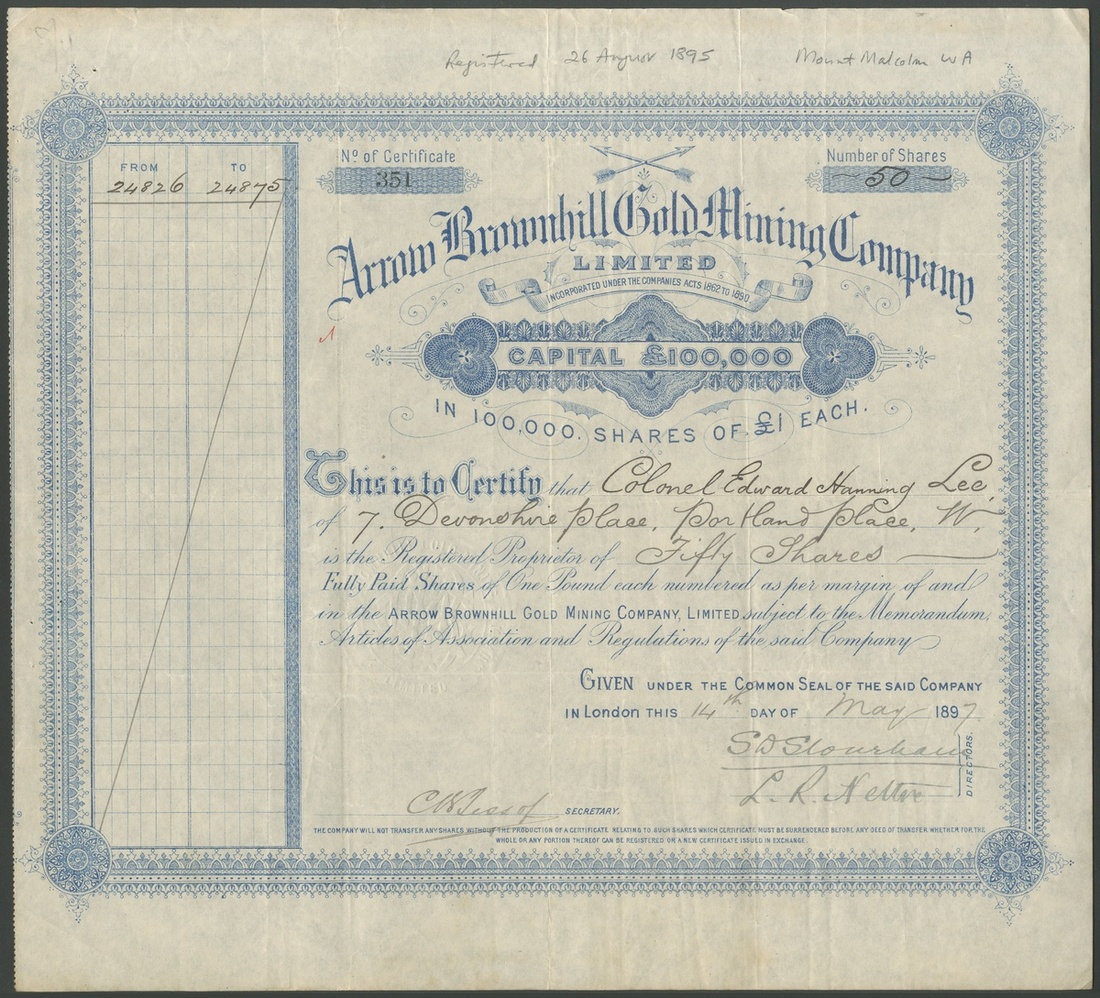 Registered 26 August 1895 Mount Malcolm WA
FROM TO
24826 24875
No of Certificate
351
Number of Shares
50
Arrow Brownhill Gold Mining Company
LIMITED
INCORPORATED UNDER THE COMPANIES ACTS 1862 TO 1890
CAPITAL £100,000
IN 100,000. SHARES OF £1 EACH.
This is to Certify that Colonel Edward Hanning Lee,
of 7. Devonshire Place, Portland Place, W,
is the Registered Proprietor of Fifty Shares
Fully Paid Shares of One Pound each numbered as per margin of and
in the ARROW BROWNHILL GOLD MINING COMPANY, LIMITED subject to the Memorandum,
Articles of Association and Regulations of the said Company
GIVEN UNDER THE COMMON SEAL OF THE SAID COMPANY
IN London THIS 14th DAY OF May 1897
DIRECTORS.
L. R.
SECRETARY.
THE COMPANY WILL NOT TRANSFER ANY SHARES WITHOUT THE PRODUCTION OF A CERTIFICATE RELATING TO SUCH SHARES WHICH CERTIFICATE MUST BE SURRENDERED BEFORE ANY DEED OF TRANSFER WHETHER FOR THE
WHOLE OR ANY PORTION THEREOF CAN BE REGISTERED OR A NEW CERTIFICATE ISSUED IN EXCHANGE.